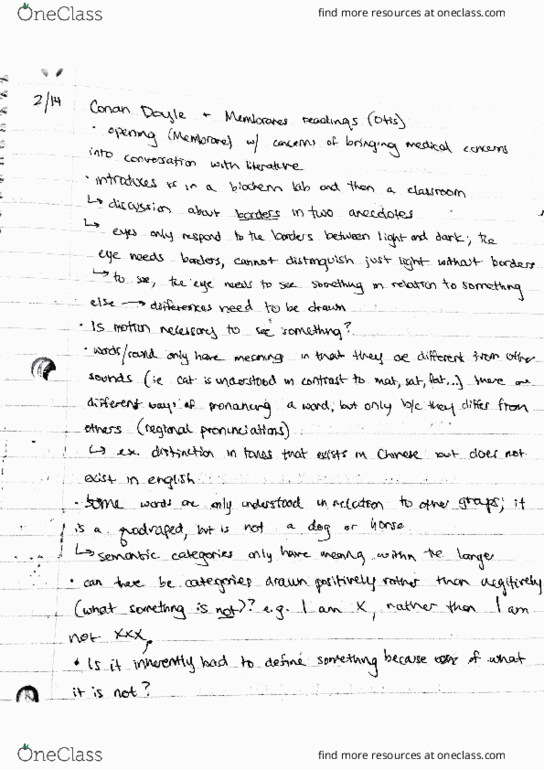 OneClass
find more resources at oneclass.com
2/14
Conan Doyle + Membranes readings (Otis)
• opening (Membrane) w/ concerns of bringing medical concerns
into conversation with literature
• introduces us in a biochem lab and then a classroom
↳ discussion about borders in two anecdotes
↳ eyes only respond to the borders between light and dark; the
eye needs borders, cannot distinguish just light without borders
↳ to see, the eye needs to see something in relation to something
else → differences need to be drawn
• Is motion necessary to see something?
• words/sound only have meaning in that they are different from other
sounds (ie cat is understood in contrast to mat, sat, fat...) there are
different ways of pronancing a word, but only b/c they differ from
others (regional pronunciations)
↳ ex. distinction in tones that exists in Chinese but does not
exist in english
• some words are only understood in relation to other groups; it
is a quadraped, but is not a dog or horse
↳ semantic categories only have meaning within the larger
• can there be categories drawn positively rather than negitively
(what something is not)? e.g. I am X, rather than I am
not XXX
• Is it inherently bad to define something because of what
it is not?
OneClass
find more resources at oneclass.com